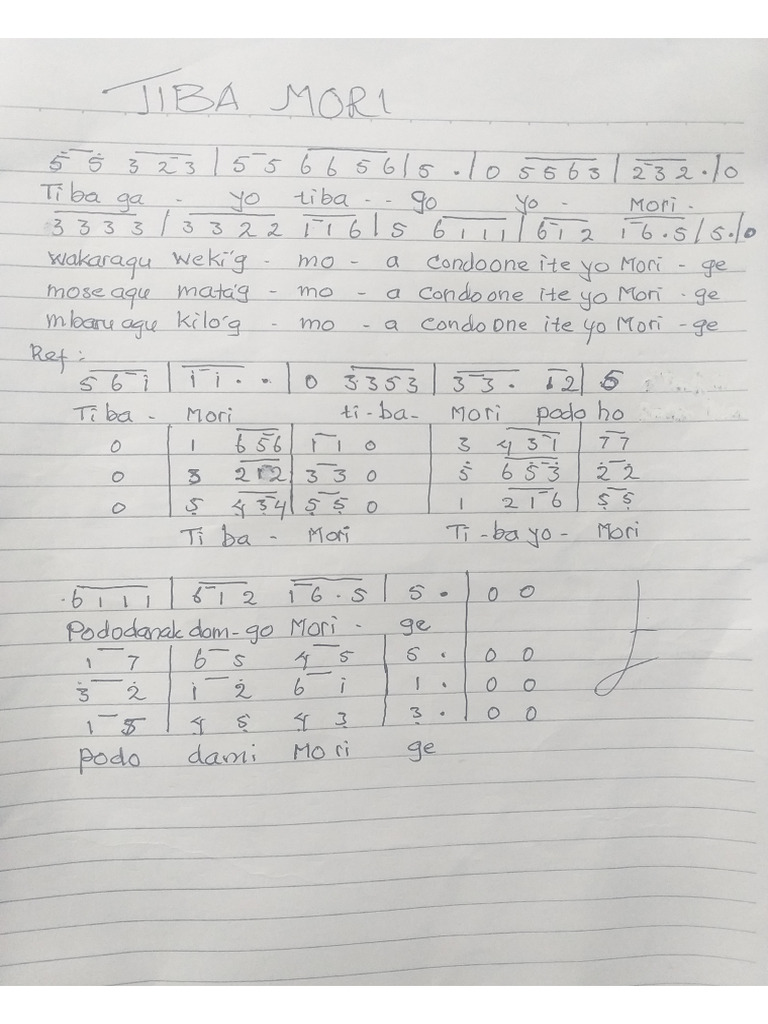 TIBA MORI
5 5 3 2 3 | 5 5 6 6 5 6 | 5 . | 0 5 5 6 3 | 2 3 2 . | 0
Tiba ga - yo tiba - - go yo - Mori -
3 3 3 3 | 3 3 2 2 1 1 6 | 5 6 1 1 1 | 6 1 2 1 6 . 5 | 5 . | 0
wakaragu weki'g - mo - a condoone ite yo Mori - ge
mose agu mata'g - mo - a condoone ite yo Mori - ge
mbaru agu kilo'g - mo - a condoone ite yo Mori - ge
Ref :
5 6 1 | 1 1 . . | 0 3 3 5 3 | 3 3 . 1 2 | 5
Tiba - Mori ti - ba - Mori podo ho
0 | 1 6 5 6 | 1 1 0 | 3 4 3 1 | 7 7
0 | 3 2 1 2 | 3 3 0 | 5 6 5 3 | 2 2
0 | 5 4 3 4 | 5 5 0 | 1 2 1 6 | 5 5
Ti ba - Mori Ti - ba yo - Mori
. 6 1 1 1 | 6 1 2 1 6 . 5 | 5 . | 0 0
Pododanak dom - go Mori - ge
1 7 | 6 5 4 5 | 5 . | 0 0
3 2 | 1 2 6 1 | 1 . | 0 0
1 5 | 4 5 4 3 | 3 . | 0 0
podo dami Mori ge